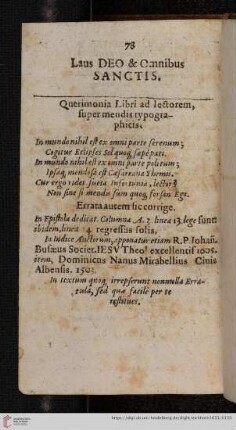 78
Laus DEO & Omnibus
SANCTIS.
Querimonia Libri ad lectorem,
super mendis typogra-
phicis.
In mundo nihil est ex omni parte serenum;
Cogitur Eclipses Sol quoq; sæpè pati.
In mundo nihil est ex omni parte politum;
Ipsaq; mendosa est Cæsareana Themis.
Cur ergo vides lector
Non sine si mendis sum quoq; forsan Ego.
Errata autem sic corrige.
In Epistola dedicat. Columna A. 2. linea 13. lege sunt
ibidem, linea 14. regressis solis.
In Indice Auctorum, apponatur etiam R. P. Johan.
Busæus Societ. IESV Theol. excellentiss 1005.
item, Dominicus Nanus Mirabellius Civis
Albensis. 1503.
In textum quoq; irrepserunt nonnulla Erra-
tula, sed quæ facilè per te
restitues.